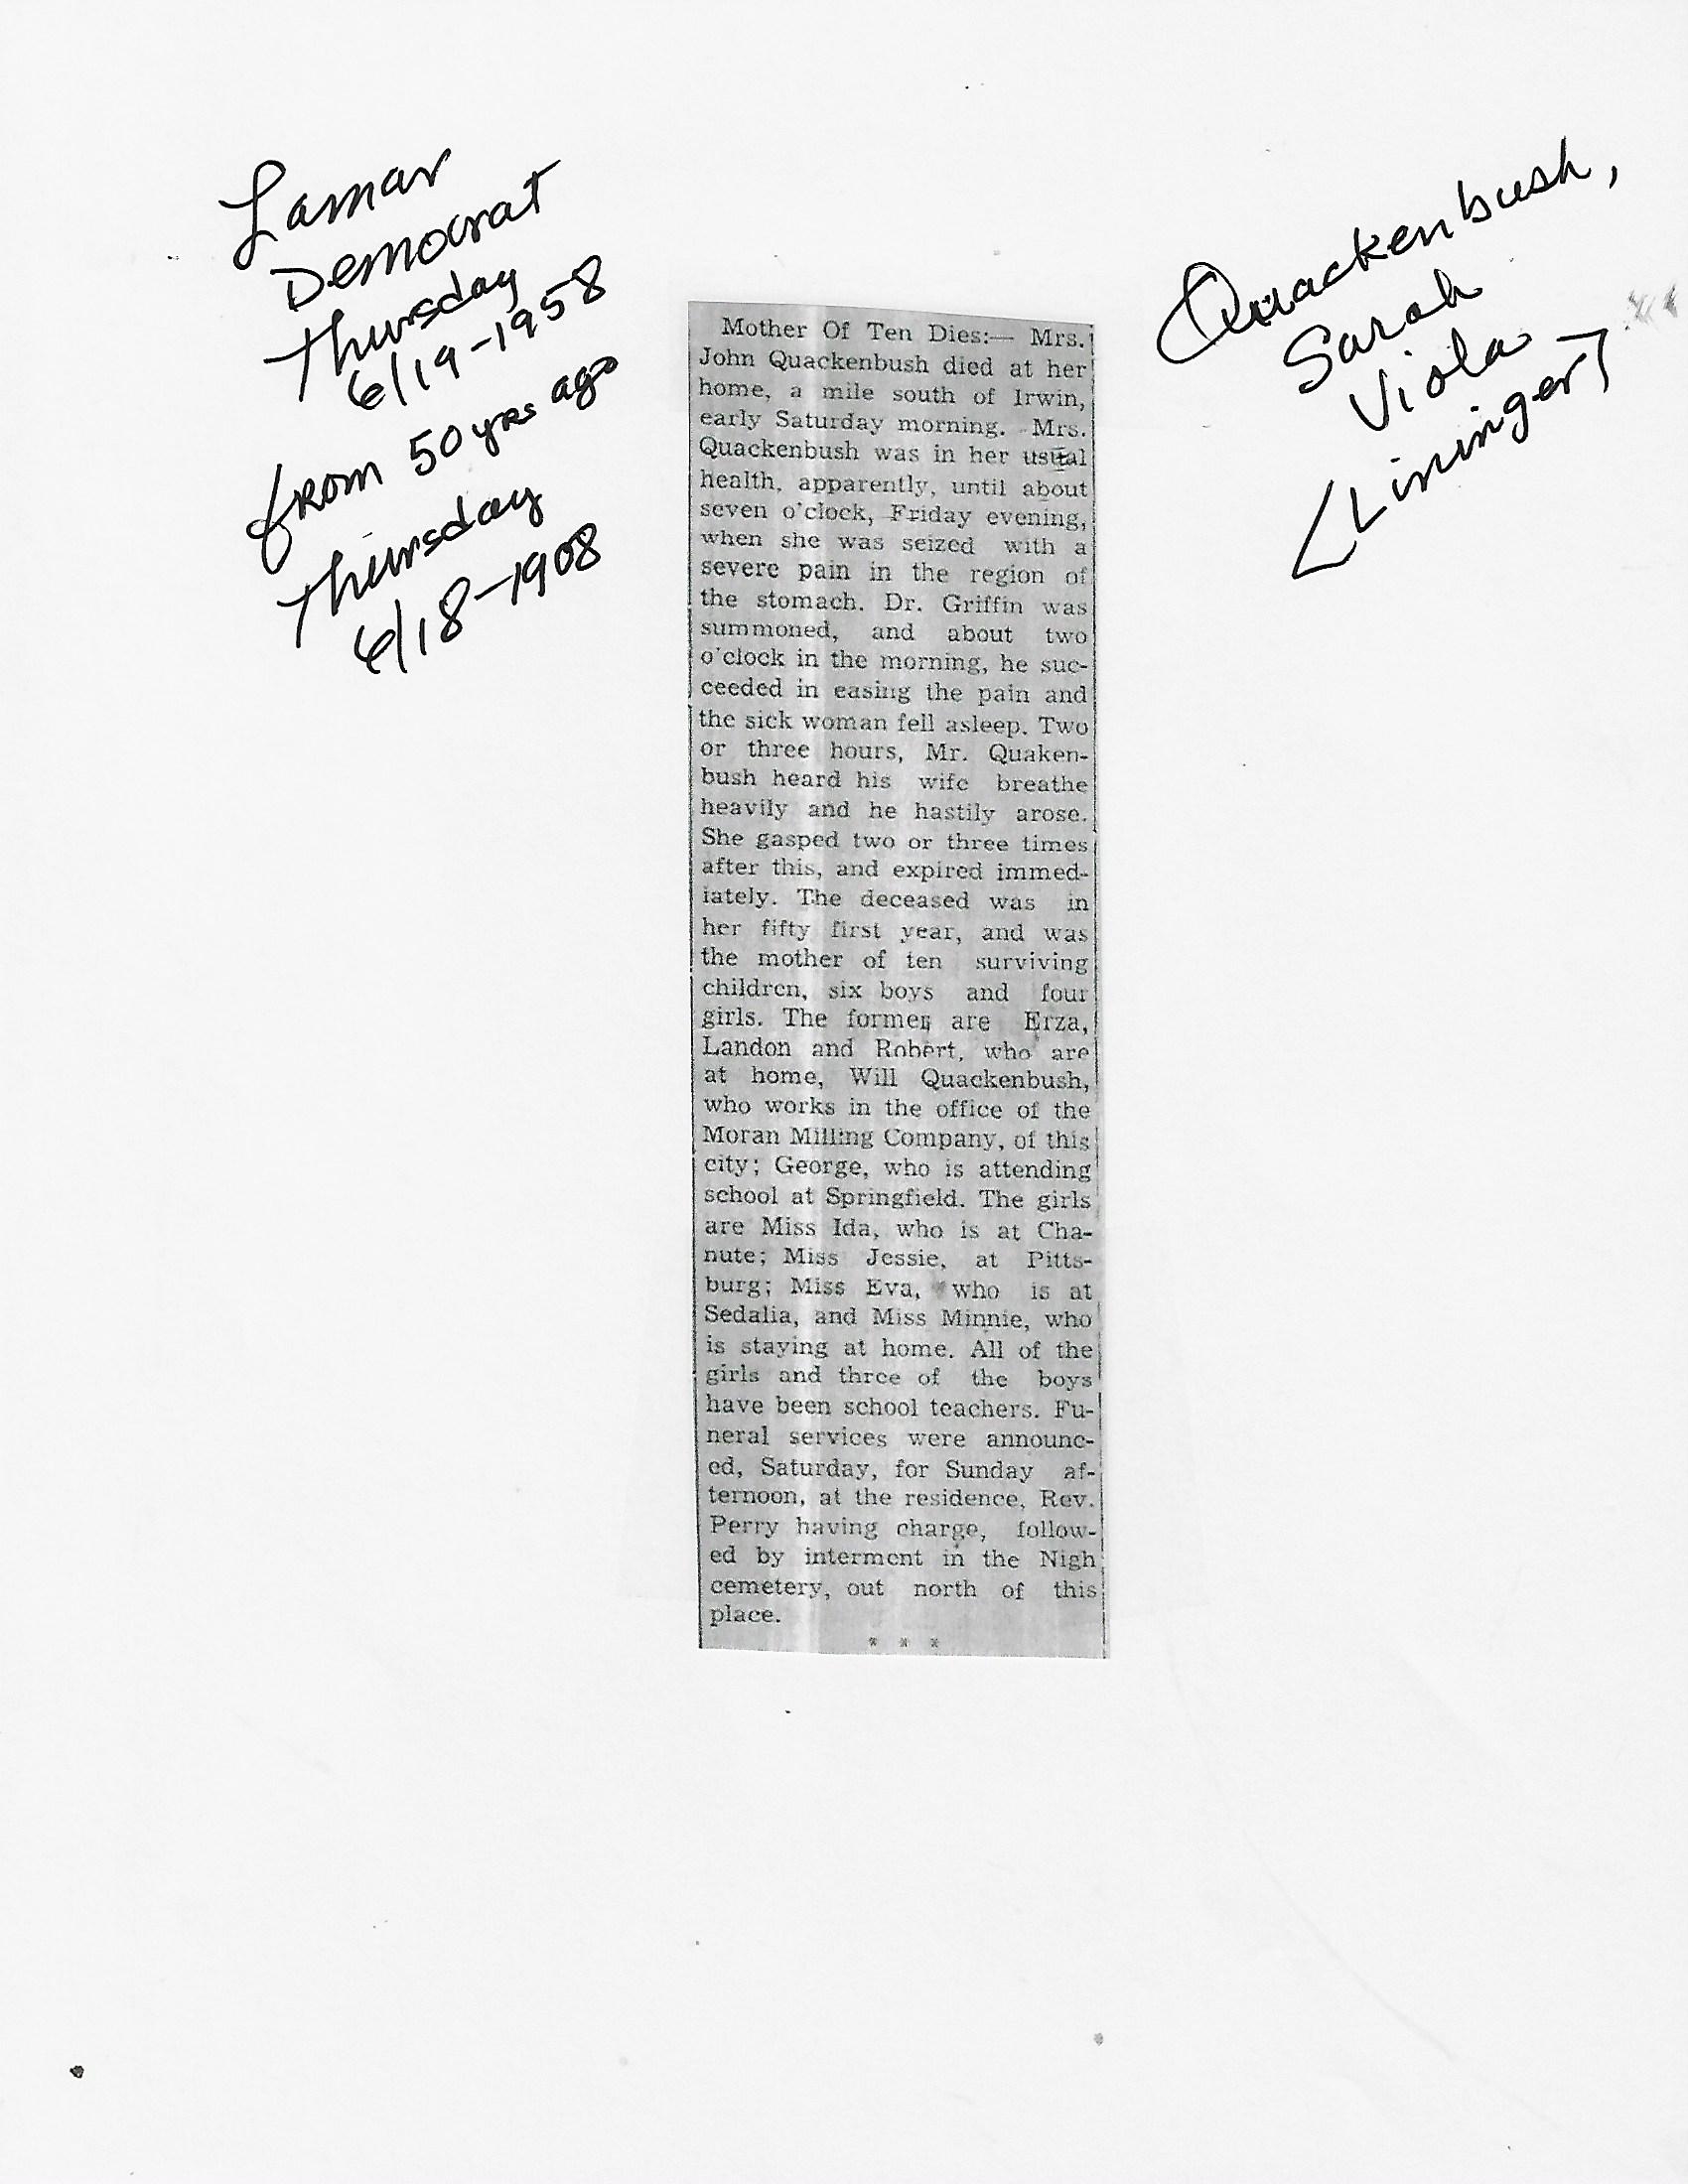 Lamar
Democrat
Thursday
6/19-1958
from 50 yrs ago
Thursday
6/18-1908
Quackenbush,
Sarah
Viola
<Lininger>
Mother Of Ten Dies:— Mrs.
John Quackenbush died at her
home, a mile south of Irwin,
early Saturday morning. Mrs.
Quackenbush was in her usual
health, apparently, until about
seven o'clock, Friday evening,
when she was seized with a
severe pain in the region of
the stomach. Dr. Griffin was
summoned, and about two
o'clock in the morning, he suc-
ceeded in easing the pain and
the sick woman fell asleep. Two
or three hours, Mr. Quaken-
bush heard his wife breathe
heavily and he hastily arose.
She gasped two or three times
after this, and expired immed-
iately. The deceased was in
her fifty first year, and was
the mother of ten surviving
children, six boys and four
girls. The former are Erza,
Landon and Robert, who are
at home, Will Quackenbush,
who works in the office of the
Moran Milling Company, of this
city; George, who is attending
school at Springfield. The girls
are Miss Ida, who is at Cha-
nute; Miss Jessie, at Pitts-
burg; Miss Eva, who is at
Sedalia, and Miss Minnie, who
is staying at home. All of the
girls and three of the boys
have been school teachers. Fu-
neral services were announc-
ed, Saturday, for Sunday af-
ternoon, at the residence, Rev.
Perry having charge, follow-
ed by interment in the Nigh
cemetery, out north of this
place.
* * *